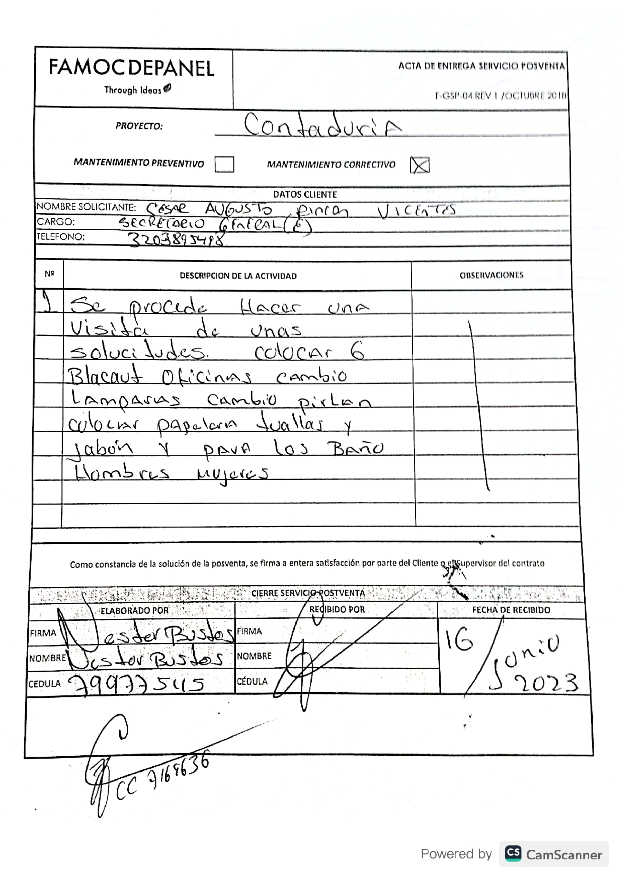 FAMOCDEPANEL
Through Ideas
ACTA DE ENTREGA SERVICIO POSVENTA
F-GSP-04 REV 1 /OCTUBRE 2018
PROYECTO: Contaduria
MANTENIMIENTO PREVENTIVO
MANTENIMIENTO CORRECTIVO X
DATOS CLIENTE
NOMBRE SOLICITANTE: CESAR AUGUSTO Rincon VICENTES
CARGO: SECRETARIO GENERAL (E)
TELEFONO: 3203895498
Nº DESCRIPCION DE LA ACTIVIDAD OBSERVACIONES
1 Se procede Hacer una
Visita de unas
solucitudes. colocar 6
Blacaut Oficinas cambio
Lamparas cambio pirlan
colocar papelera tuallas y
jabón y para los Baño
Hombres mujeres
Como constancia de la solución de la posventa, se firma a entera satisfacción por parte del Cliente o el Supervisor del contrato
CIERRE SERVICIO POSTVENTA
ELABORADO POR RECIBIDO POR FECHA DE RECIBIDO
FIRMA Nestor Bustos FIRMA
NOMBRE Nestor Bustos NOMBRE
CEDULA 79977545 CÉDULA
16 / Junio 2023
CC 7169636
Powered by CS CamScanner